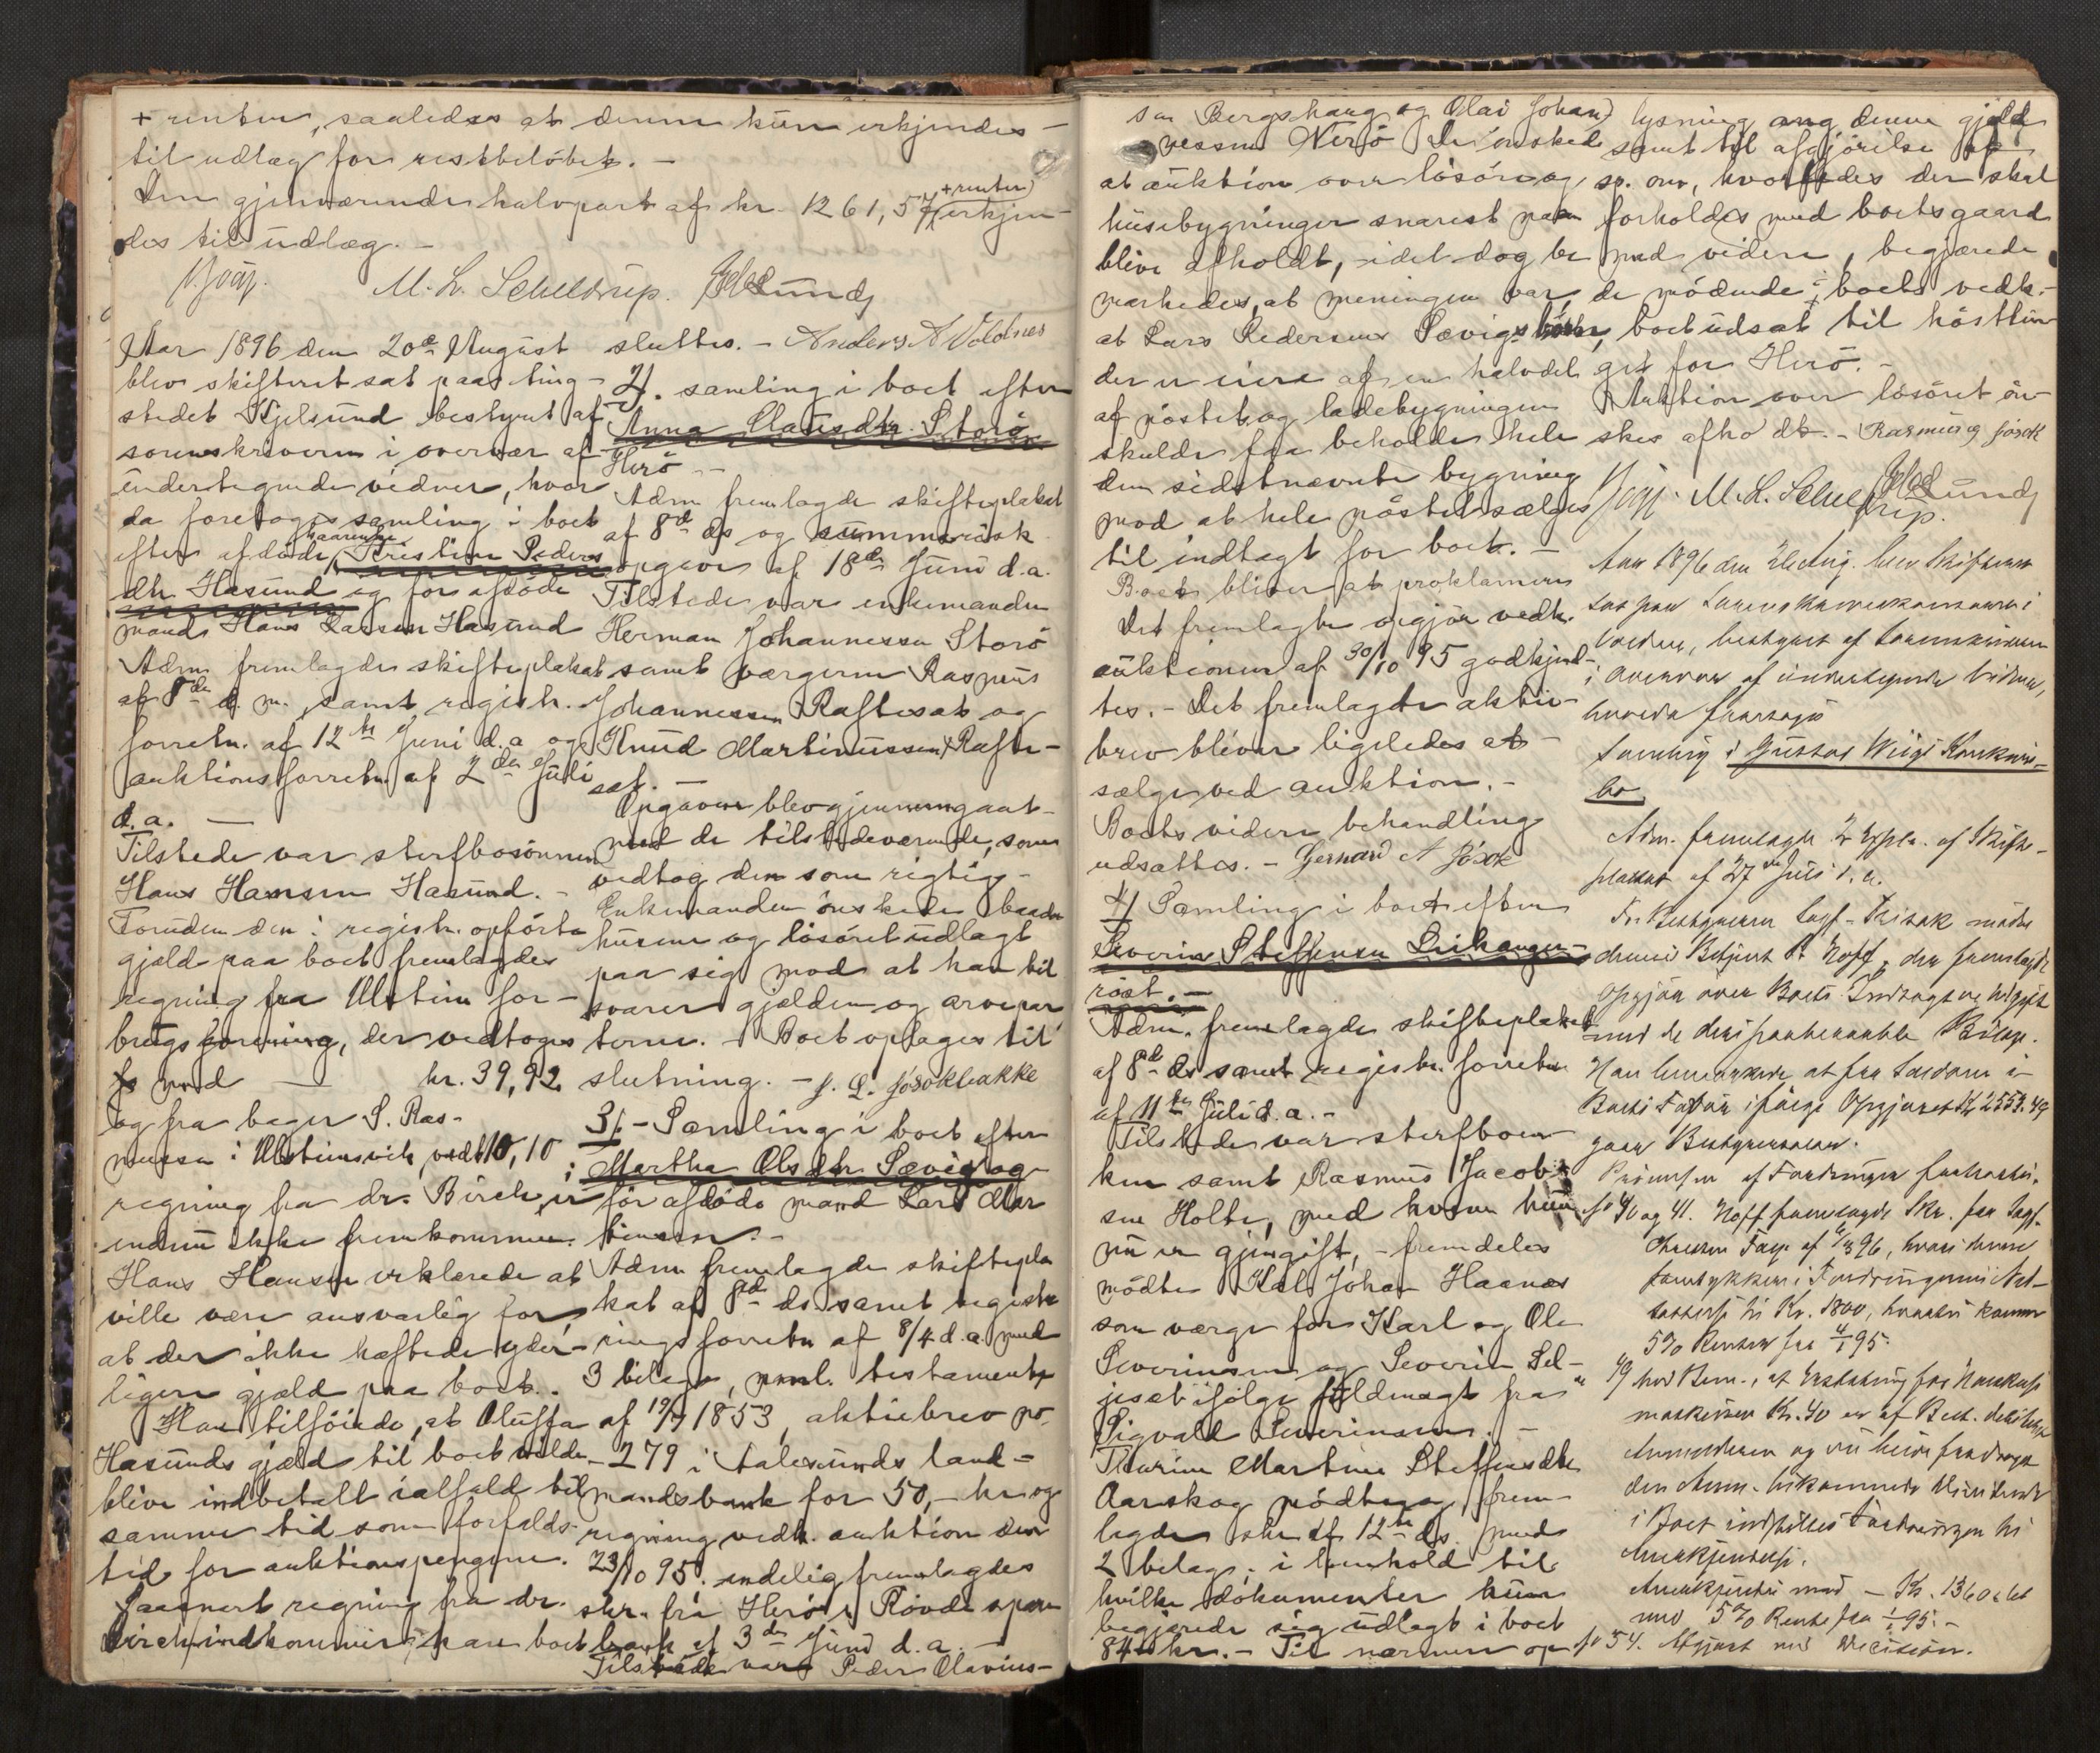 + renter, saaledes at denne kun erkjendes
til udlæg for restbeløbet. –
Den gjenværende halvpart af kr. 1261,57 + renter erkjen-
des til udlæg. –
M. L. Scheldrup.
Aar 1896 den 20de August
blev skifteret sat paa ting-
stedet Kjelsund bestyret af
sorenskriveren i overvær af
undertegnede vidner, hvor
da foretoges samling i boet
efter afdøde kaarenke Kristine Peders
dtr. Hasund og før afdøde
mand Hans Larsen Hasund
Adm. fremlagde skifteplakat
af 8de d. m. samt registr.
forretn. af 12te Juni d.a og
auktionsforretn. af 2den Juli
d.a. –
Tilstede var sterfbosønnen
Hans Hansen Hasund. –
Foruden den i registr. opførte
gjæld paa boet fremlagdes
regning fra Ulstein for-
brugsforening, der vedtoges
med — kr. 39,92
og fra bager S. Ras-
mussen i Ulsteinsvik, vedt. 10,10
regning fra dr. Birch er
endnu ikke fremkommen.
Hans Hansen erklærede at
ville være ansvarlig for
at der ikke hæftede yder-
ligere gjæld paa boet.
Han tilføiede, at Oluffa
Hasunds gjæld til boet vilde
blive indbetalt ialfald til
samme tid som forfalds-
tid for auktionspengene.
Saasnart regning fra dr.
Birch indkommer, kan boet
sluttes. – Anders A Voldnes
2/. samling i boet efter
Anna Clausdtr. Storø
Herø –
Adm. fremlagde skifteplakat
af 8de ds og summarisk
opgave af 18de Juni d.a.
Tilstede var enkemanden
Herman Johannessen Storø
samt værgerne Rasmus
Johannessen Raftesat og
Knud Martinussen Rafte-
sæt. –
Opgaven blev gjennemgaat
med de tilstedeværende, som
vedtog den som rigtig. –
Enkemanden ønskede baade
husene og løsøret udlagt
paa sig mod at han til
svarer gjælden og arvepar
terne. – Boet optages til
slutning. – J. L. Jøsokbakke
3/. – Samling i boet efter
Martha Olsdtr. Sævig og
før afdøde mand Lars Mar
tinussen. –
Adm. fremlagde skiftepla
kat af 8de ds. samt registre
ringsforretn. af 8/4 d.a. med
3 bilage, nml. testamente
af 19/7 1853, aktiebrev no.
279 i Aalesunds land-
mandsbank for 50,– kr. og
regning vedk. auktion den
23/10 95. endelig fremlagdes
skr. fra Herø & Røvde spare
bank af 3de Juni d.a. –
Tilstede var Peder Olavius-
sen Bergshaug og Olai Johan
nessen Nerø De ønskede
at auktion over løsøre og
husebygninger snarest maa
blive afholdt, idet dog be
mærkedes, at meningen var,
at Lars Pedersens Sævigs
der er eiere af en halvdel
af nøstet og ladebygningen
skulde faa beholde hele
den sidstnævnte bygning
mod at hele nøstet sælges
til indtægt for boet. –
Boet bliver at proklamere
Det fremlagte opgjør vedk.
auktionen af 30/10 95 godkjend-
tes. – Det fremlagte aktie-
brev bliver ligeledes at
sælge ved auktion. –
Boets videre behandling
udsattes. – Gerhard A Jøsok
4/ Samling i boet efter
Severin Steffensen Leikanger-
røst. –
Adm. fremlagde skifteplakat
af 8de ds samt registr. forretn.
af 11te Juli d.a. –
Tilstede var sterfboen
ken samt Rasmus Jacob
sen Holte, med hvem hun
nu er gjengift, – fremdeles
mødte Karl Johan Haanæs
som værge for Karl og Ole
Severinsen og Severin Sel-
jeset ifølge fuldmagt fra
Sigvald Severinsen. –
Thorine Martine Steffensdtr.
Aarskog mødte og frem-
lagde skr. af 12te ds. med
2 bilage, i henhold til
hvilke dokumenter hun
begjærede sig udlagt i boet
840 kr. – Til nærmere op
lysning ang denne gjæld
samt til afgjørelse af
sp. om, hvorledes der skal
forholdes med boets gaard
med videre, begjærede
de mødende i boets vedk.
boet udsat til høstthin
get for Herø. –
Auktion over løsøret øn-
skes afholdt. – Rasmus Jøsok
M. L. Scheldrup.
Aar 1896 den Aug. blev Skifteret
sat paa Sorenskriverkontoret i
Volden, bestyret af Sorenskriveren
i Overvær af undertegnede Vidner,
hvorda foretoges
Samling i Gustav Wiigs Konkurs-
bo.
Adm. fremlagde 2 Expl. af Skifte-
plakat af 27de Juli d.a.
For Bestyreren Sagf. mødte
dennes Betjent R. Hoff, der fremlagde
Opgjør over Boets Indtægt og Udgift
med de deri paaberaabte Bilage.
Han bemærkede, at
Boets Favør ifølge Opgjøret Kr 2553.49
Prøvelsen af Fordringer
No 40 og 41. Hoff fremlagde Skr. fra Sagf.
5% Renter fra 95.
den Anm.
i Boet indstilles Fordringen til
Anerkjendelse.
Anerkjendes med – Kr. 1360
med 5% Rente fra 95. –
No 54. Afgjøres ved Decision.